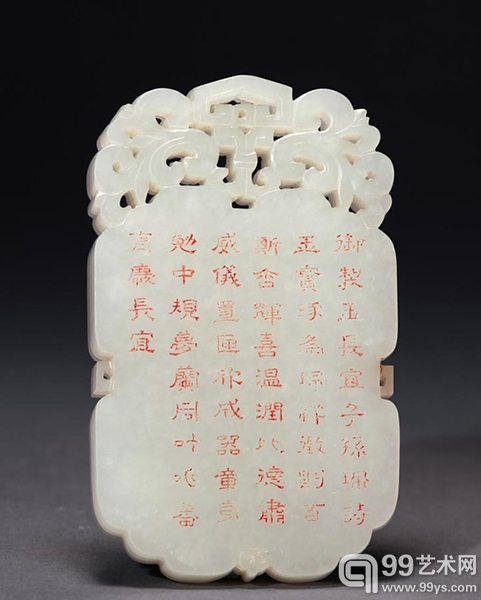 御製玉長宜子孫珮詩
玉寶琢為珮祥徵則百
斯含輝喜溫潤比德肅
威儀置匣祢成器童
勉中規夢蘭周叶兆蕃
育慶長宜
99艺术网
www.99ys.com